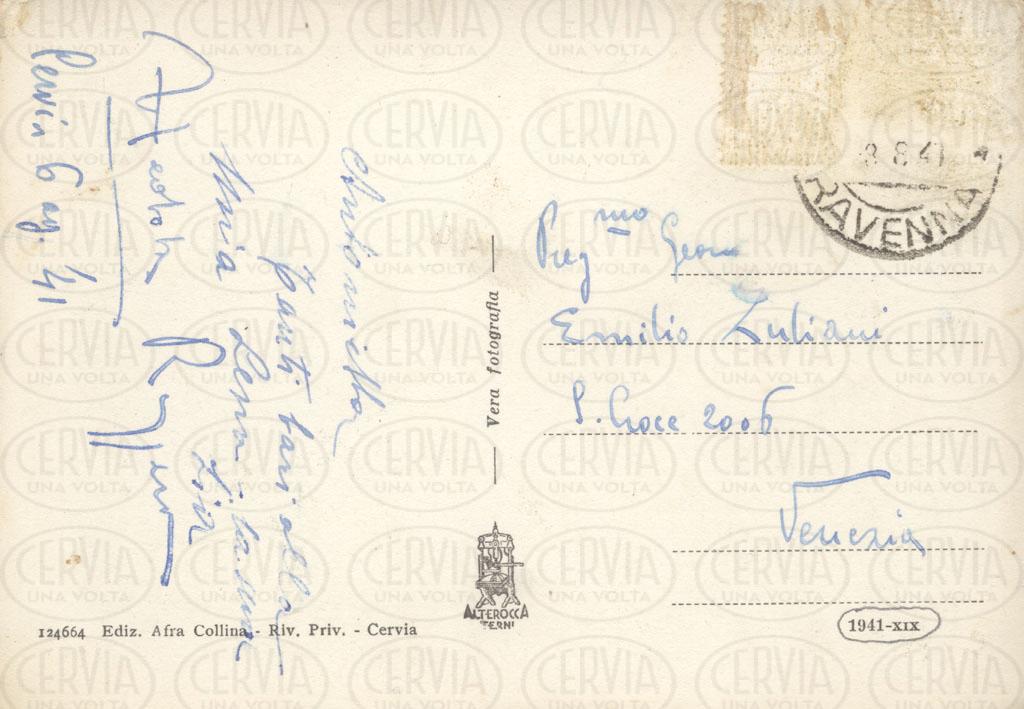 Cervia 6 ag. 41
Antonietta
Tanti baci alla
mia Lena. La sua
Zia
Preg mo Geom
Emilio Zuliani
S. Croce 2006
Venezia
8.8.41
RAVENNA
Vera fotografia
ALTEROCCA
TERNI
124664 Ediz. Afra Collina - Riv. Priv. - Cervia
1941-XIX
CERVIA
UNA VOLTA